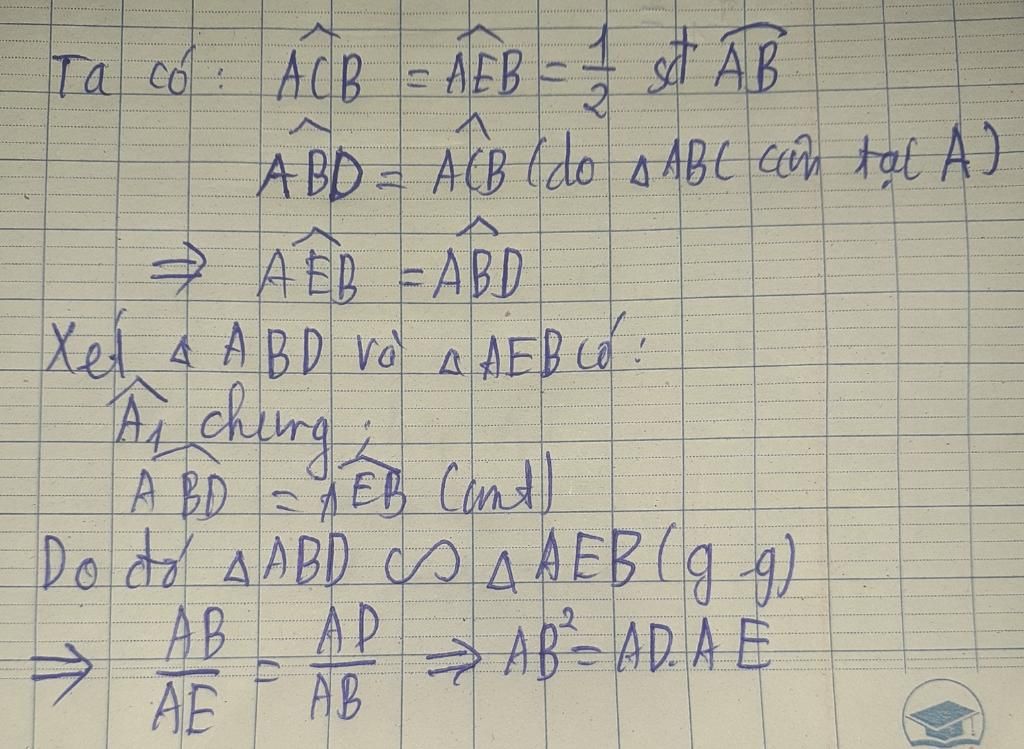 Ta có: $\widehat{ACB} = \widehat{AEB} = \frac{1}{2}$ sđ $\overset{\frown}{AB}$
$\widehat{ABD} = \widehat{ACB}$ (do △ABC cân tại A)
⇒ $\widehat{AEB} = \widehat{ABD}$
Xét △ ABD và △ AEB có:
$\widehat{A_1}$ chung;
$\widehat{ABD} = \widehat{AEB}$ (cmt)
Do đó △ABD ∽ △AEB (g-g)
⇒ $\frac{AB}{AE} = \frac{AD}{AB}$ ⇒ $AB^2 = AD.AE$